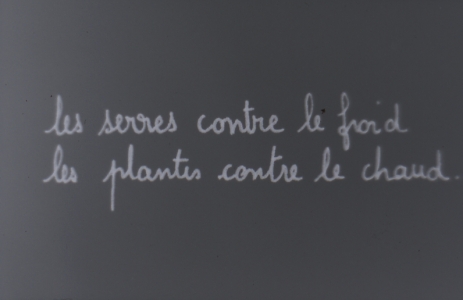 les serres contre le froid
les plantes contre le chaud.